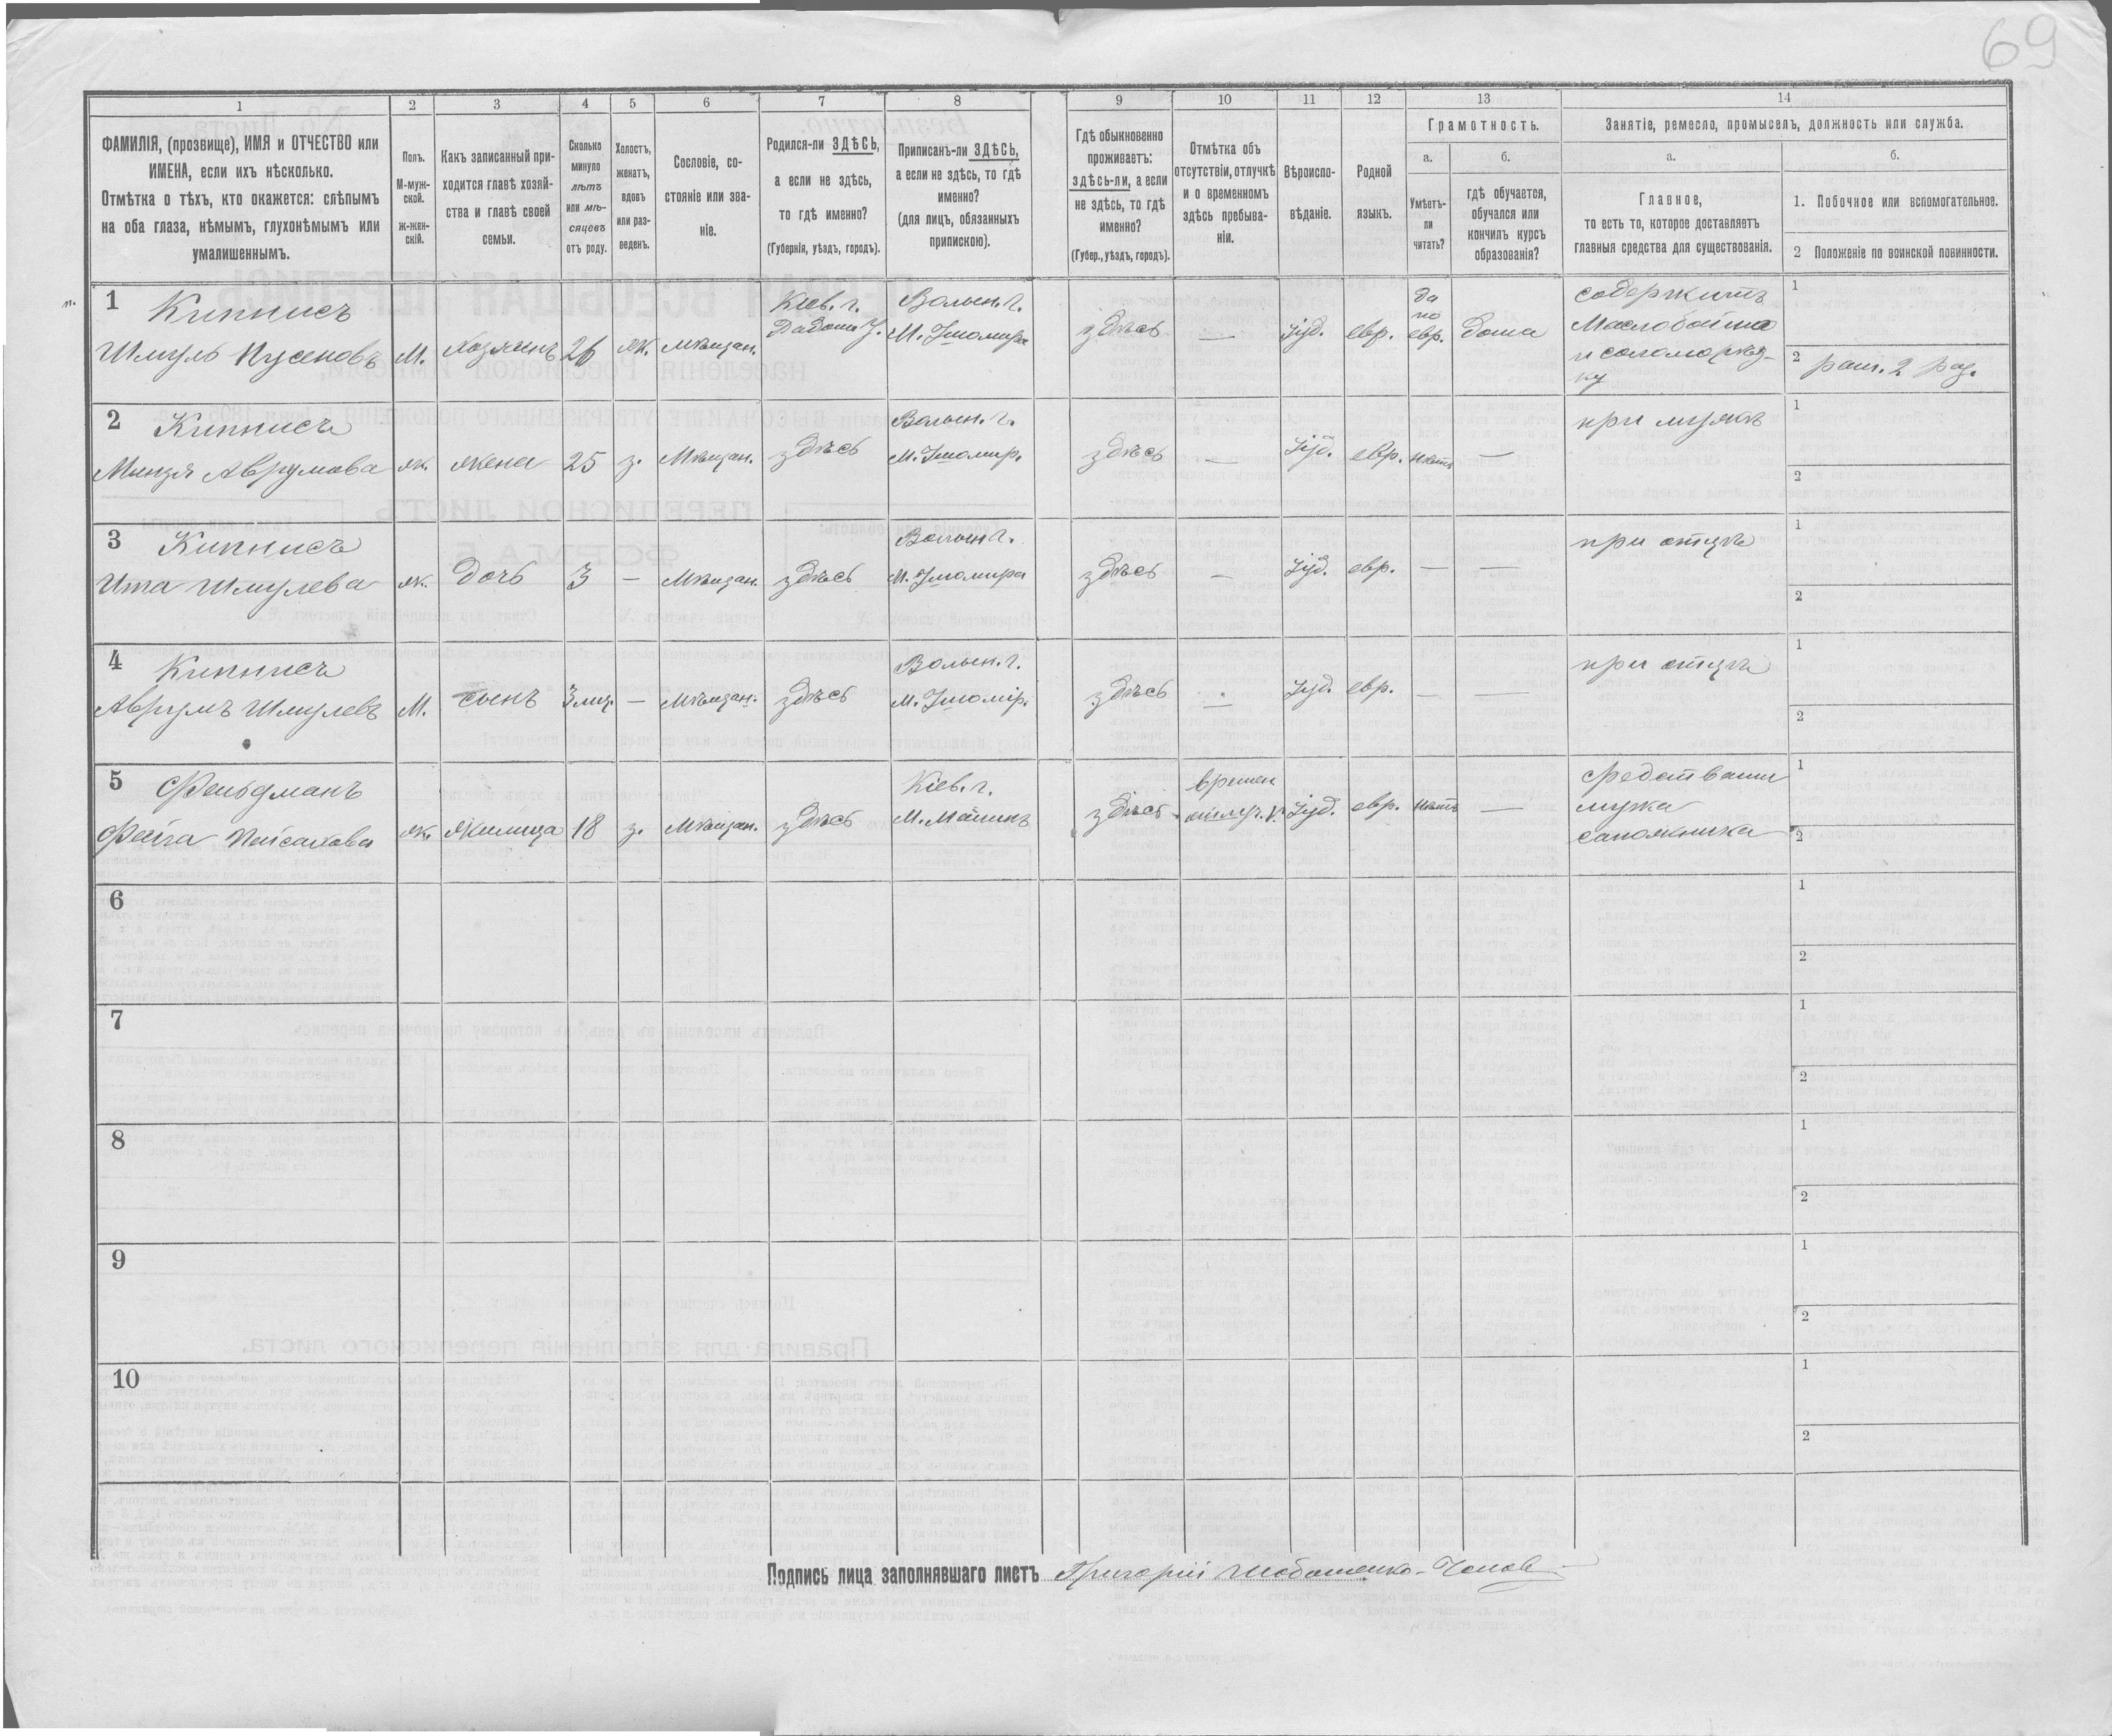 69
1 2 3 4 5 6 7 8 9 10 11 12 13 14
ФАМИЛІЯ, (прозвище), ИМЯ и ОТЧЕСТВО или
ИМЕНА, если ихъ нѣсколько.
Отмѣтка о тѣхъ, кто окажется: слѣпымъ
на оба глаза, нѣмымъ, глухонѣмымъ или
умалишеннымъ.
Полъ.
М-муж-
ской.
ж-жен-
скій.
Какъ записанный при-
ходится главѣ хозяй-
ства и главѣ своей
семьи.
Сколько
минуло
лѣтъ
или мѣ-
сяцевъ
отъ роду.
Холостъ,
женатъ,
вдовъ
или раз-
веденъ.
Сословіе, со-
стояніе или зва-
ніе.
Родился-ли ЗДѢСЬ,
а если не здѣсь,
то гдѣ именно?
(Губернія, уѣздъ, городъ).
Приписанъ-ли ЗДѢСЬ,
а если не здѣсь, то гдѣ
именно?
(для лицъ, обязанныхъ
припискою).
Гдѣ обыкновенно
проживаетъ:
здѣсь-ли, а если
не здѣсь, то гдѣ
именно?
(Губер., уѣздъ, городъ).
Отмѣтка объ
отсутствіи, отлучкѣ
и о временномъ
здѣсь пребыва-
ніи.
Вѣроиспо-
вѣданіе.
Родной
языкъ.
Грамотность.
а.
Умѣетъ-
ли
читать?
б.
гдѣ обучается,
обучался или
кончилъ курсъ
образованія?
Занятіе, ремесло, промыселъ, должность или служба.
а.
Главное,
то есть то, которое доставляетъ
главныя средства для существованія.
б.
1. Побочное или вспомогательное.
2 Положеніе по воинской повинности.
1 Кипнисъ
Шмуль Нусеновъ
М.
хозяинъ
26
ж.
мѣщан.
Кіев. г.
Волын. г.
здѣсь
—
Іуд.
евр.
да
по
евр.
дома
содержитъ
Маслобойню
1
2
2 Кипнисъ
Аврумова
ж.
жена
25
з.
мѣщан.
здѣсь
Волын. г.
здѣсь
—
Іуд.
евр.
нѣтъ
—
при мужѣ
1
2
3 Кипнисъ
Ита Шмулева
ж.
дочь
3
—
мѣщан.
здѣсь
Волын г.
здѣсь
—
Іуд.
евр.
—
—
при отцѣ
1
2
4 Кипнисъ
Аврумъ Шмулевъ
М.
сынъ
3 мц.
—
мѣщан.
здѣсь
Волын. г.
здѣсь
—
Іуд.
евр.
—
—
при отцѣ
1
2
5 Фельдманъ
Фейга Пейсахова
ж.
жилица
18
з.
мѣщан.
здѣсь
Кіев. г.
здѣсь
времен
Іуд.
евр.
нѣтъ
—
средствами
мужа
сапожника
1
2
6
1
2
7
1
2
8
1
2
9
1
2
10
1
2
Подпись лица заполнявшаго листъ Григорій